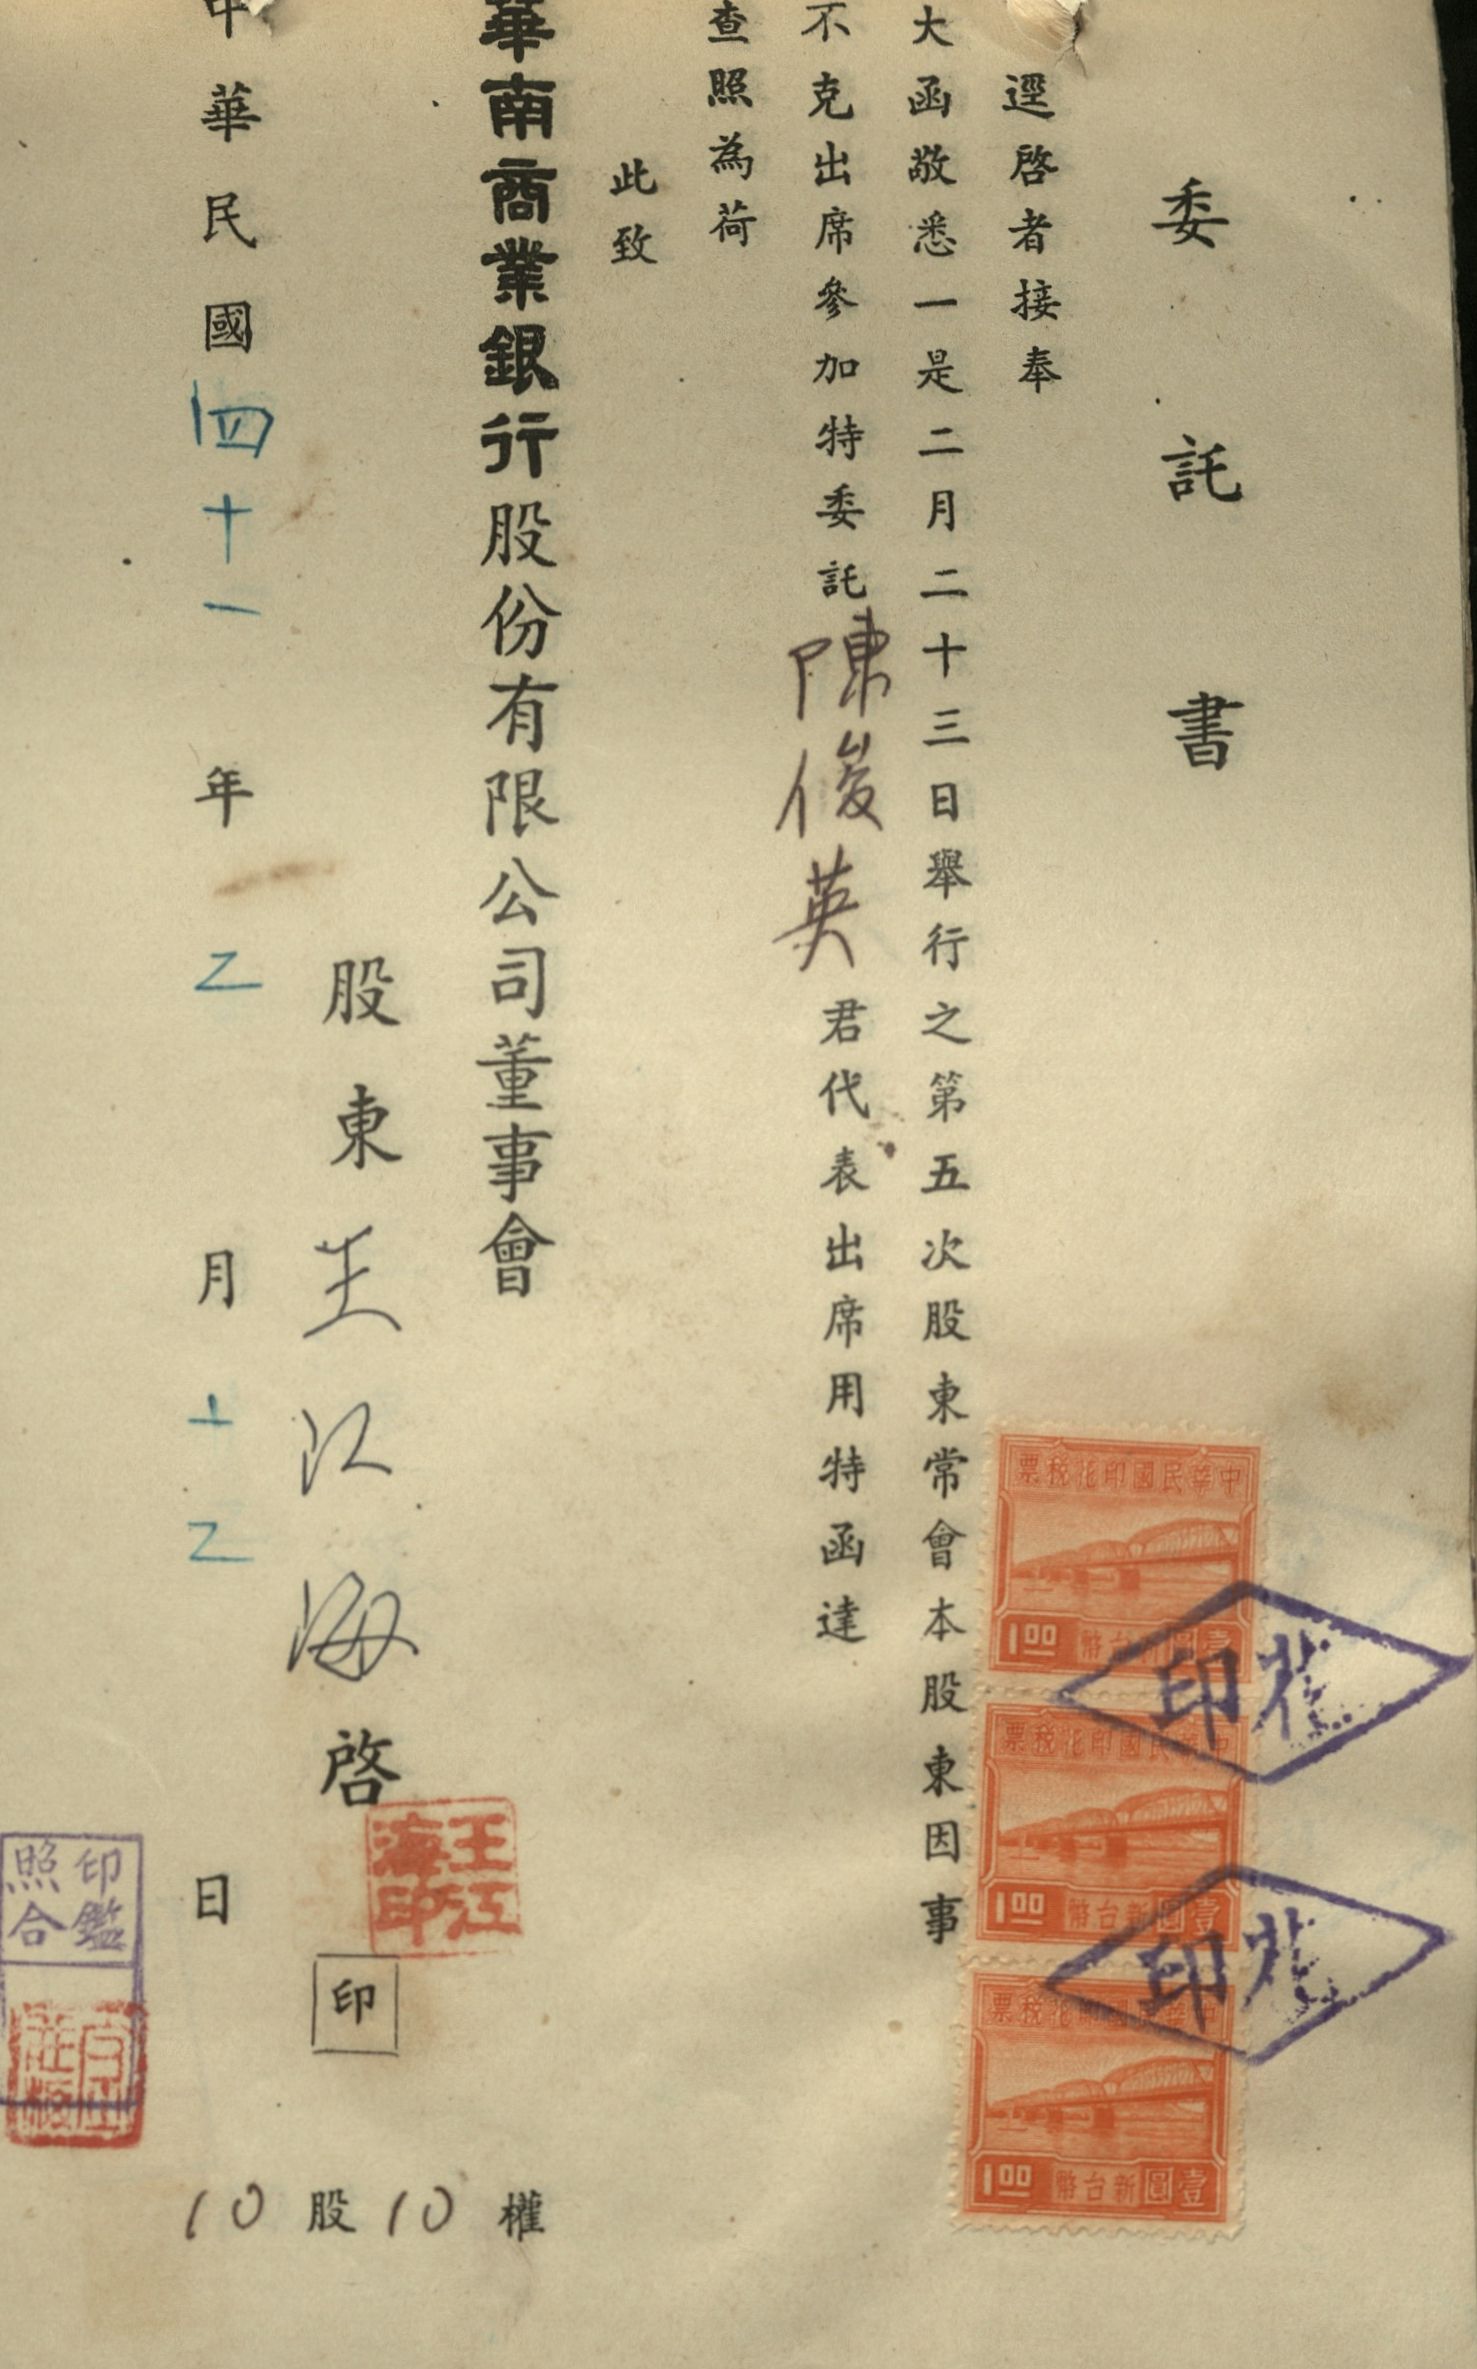 委託書
逕啓者接奉
大函敬悉一是二月二十三日舉行之第五次股東常會本股東因事
不克出席參加特委託陳俊英君代表出席用特函達
查照為荷
此致
華南商業銀行股份有限公司董事會
股東王江海啓
印
王江海印
中華民國四十一年乙月十乙日
10股10權
印鑑照合
中華民國印花稅票
1.00
壹圓新台幣
中華民國印花稅票
1.00
壹圓新台幣
中華民國印花稅票
1.00
壹圓新台幣
印花
印花